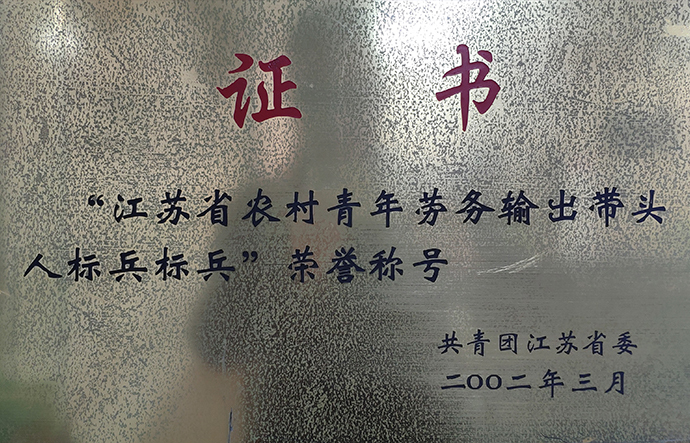 证书
“江苏省农村青年劳务输出带头
人标兵标兵”荣誉称号
共青团江苏省委
二OO二年三月